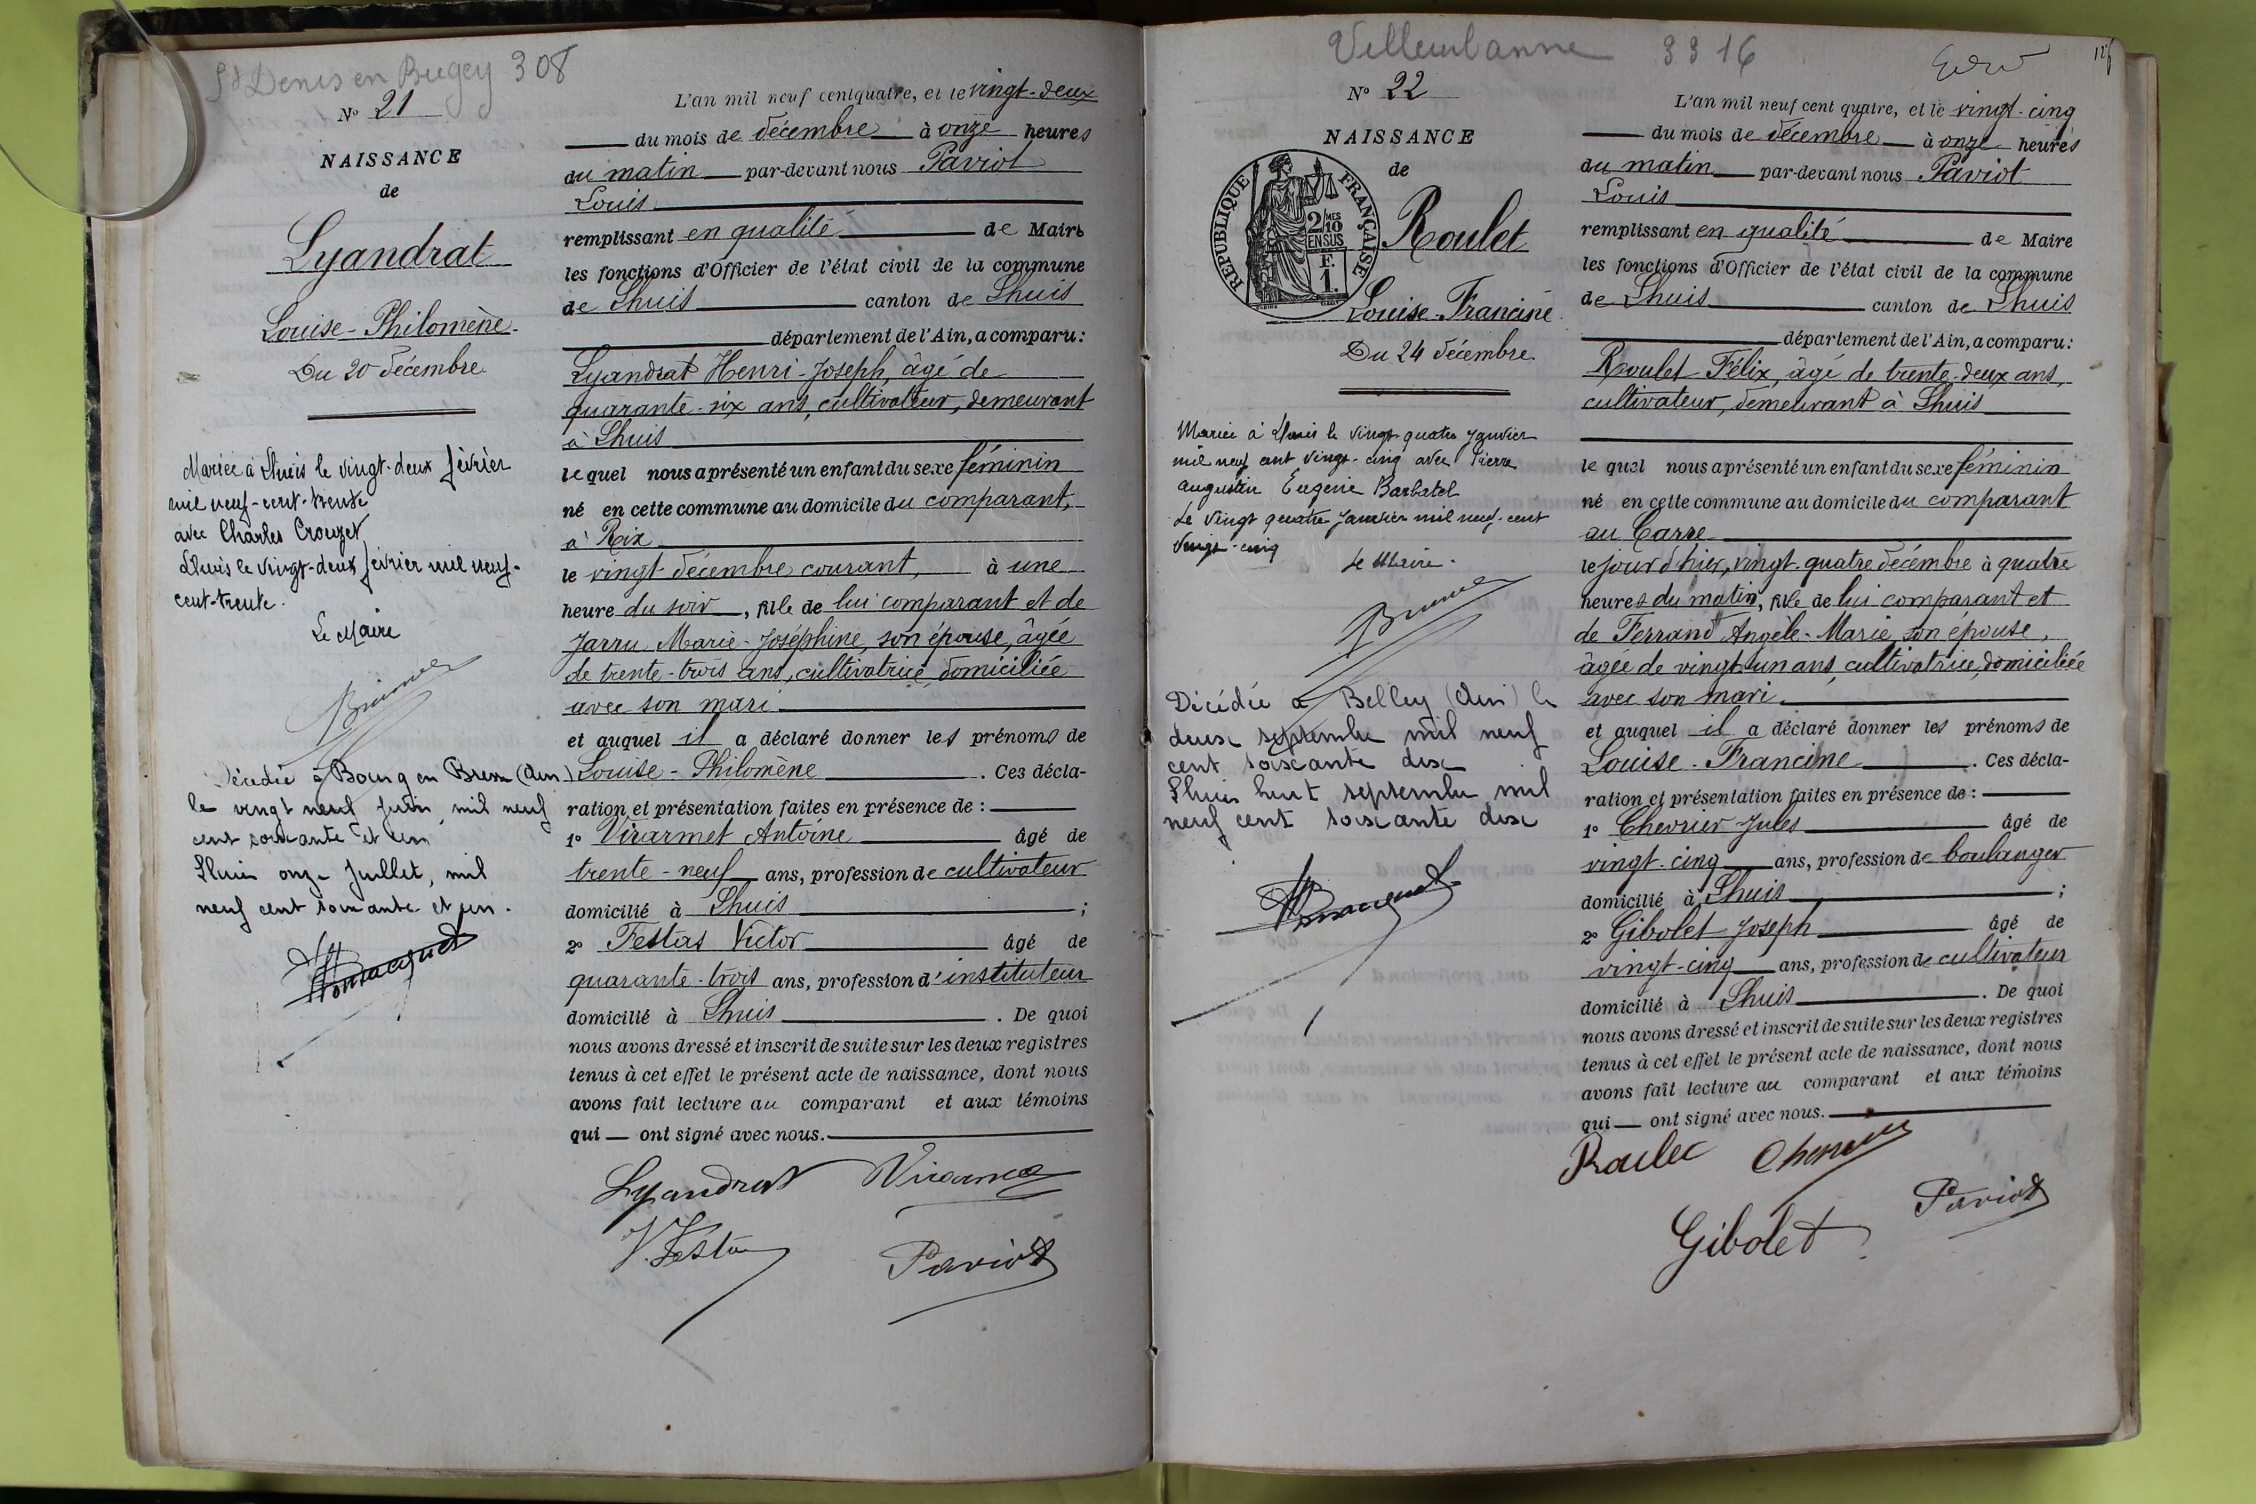 St Denis en Bugey 308
N° 21
NAISSANCE
de
Lyandrat
Louise-Philomène.
Du 20 décembre
Mariée à Lhuis le vingt-deux février
mil neuf-cent-trente
avec Charles Crouzet
Lhuis le vingt-deux février mil neuf-
cent-trente.
Le Maire
Décédée à Bourg en Bresse (Ain)
le vingt neuf juin, mil neuf
cent soixante et un
Lhuis onze Juillet, mil
neuf cent soixante et un.
L'an mil neuf cent quatre, et le vingt-deux
du mois de décembre à onze heures
du matin par-devant nous Paviot
Louis
remplissant en qualité de Maire
les fonctions d'Officier de l'état civil de la commune
de Lhuis canton de Lhuis
département de l'Ain, a comparu:
Lyandrat Henri-Joseph, âgé de
quarante-six ans, cultivateur, demeurant
à Lhuis
lequel nous a présenté un enfant du sexe féminin
né en cette commune au domicile du comparant,
à Rix
le vingt décembre courant, à une
heure du soir, fille de lui comparant et de
Jarru Marie-Joséphine, son épouse, âgée
de trente-trois ans, cultivatrice, domiciliée
avec son mari
et auquel il a déclaré donner les prénoms de
Louise-Philomène. Ces décla-
ration et présentation faites en présence de :
1° Virarmet Antoine âgé de
trente-neuf ans, profession de cultivateur
domicilié à Lhuis ;
2° Festas Victor âgé de
quarante-trois ans, profession d'instituteur
domicilié à Lhuis. De quoi
nous avons dressé et inscrit de suite sur les deux registres
tenus à cet effet le présent acte de naissance, dont nous
avons fait lecture au comparant et aux témoins
qui — ont signé avec nous.
Lyandrat
V. Festas Paviot
Villeurbanne 3316
N° 22
NAISSANCE
de
REPUBLIQUE FRANÇAISE
2/MES
10
EN SUS
F.
1.
Roulet
Louise-Francine
Du 24 décembre
Mariée à Lhuis le vingt quatre Janvier
mil neuf cent vingt-cinq avec Pierre
Augustin Eugène Barbatel
Le vingt quatre Janvier mil neuf-cent
vingt-cinq
Le Maire.
Décédée à Belley (Ain) le
deux septembre mil neuf
cent soixante dix
Lhuis huit septembre mil
neuf cent soixante dix
L'an mil neuf cent quatre, et le vingt-cinq
du mois de décembre à onze heures
du matin par-devant nous Paviot
Louis
remplissant en qualité de Maire
les fonctions d'Officier de l'état civil de la commune
de Lhuis canton de Lhuis
département de l'Ain, a comparu:
Roulet Félix, âgé de trente-deux ans,
cultivateur, demeurant à Lhuis
lequel nous a présenté un enfant du sexe féminin
né en cette commune au domicile du comparant
au Carre
le jour d'hier, vingt-quatre décembre à quatre
heures du matin, fille de lui comparant et
de Ferrand Angèle-Marie, son épouse,
âgée de vingt-un ans, cultivatrice, domiciliée
avec son mari
et auquel il a déclaré donner les prénoms de
Louise-Francine. Ces décla-
ration et présentation faites en présence de :
1° Chevrier Jules âgé de
vingt-cinq ans, profession de boulanger
domicilié à Lhuis ;
2° Gibolet Joseph âgé de
vingt-cinq ans, profession de cultivateur
domicilié à Lhuis. De quoi
nous avons dressé et inscrit de suite sur les deux registres
tenus à cet effet le présent acte de naissance, dont nous
avons fait lecture au comparant et aux témoins
qui — ont signé avec nous.
Roulet Chevrier
Gibolet Paviot